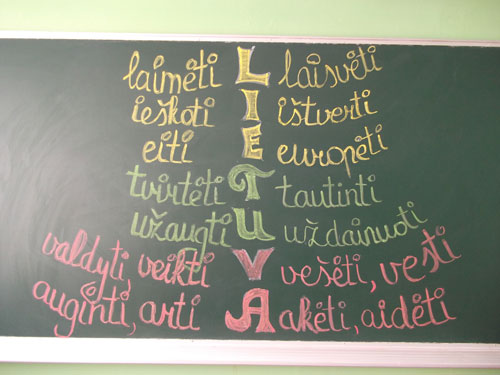 laimėti L laisvėti
ieškoti I ištverti
eiti E europėti
tvirtėti T tautinti
užaugti U uždainuoti
valdyti, veikti V vešėti, vesti
auginti, arti A akėti, aidėti